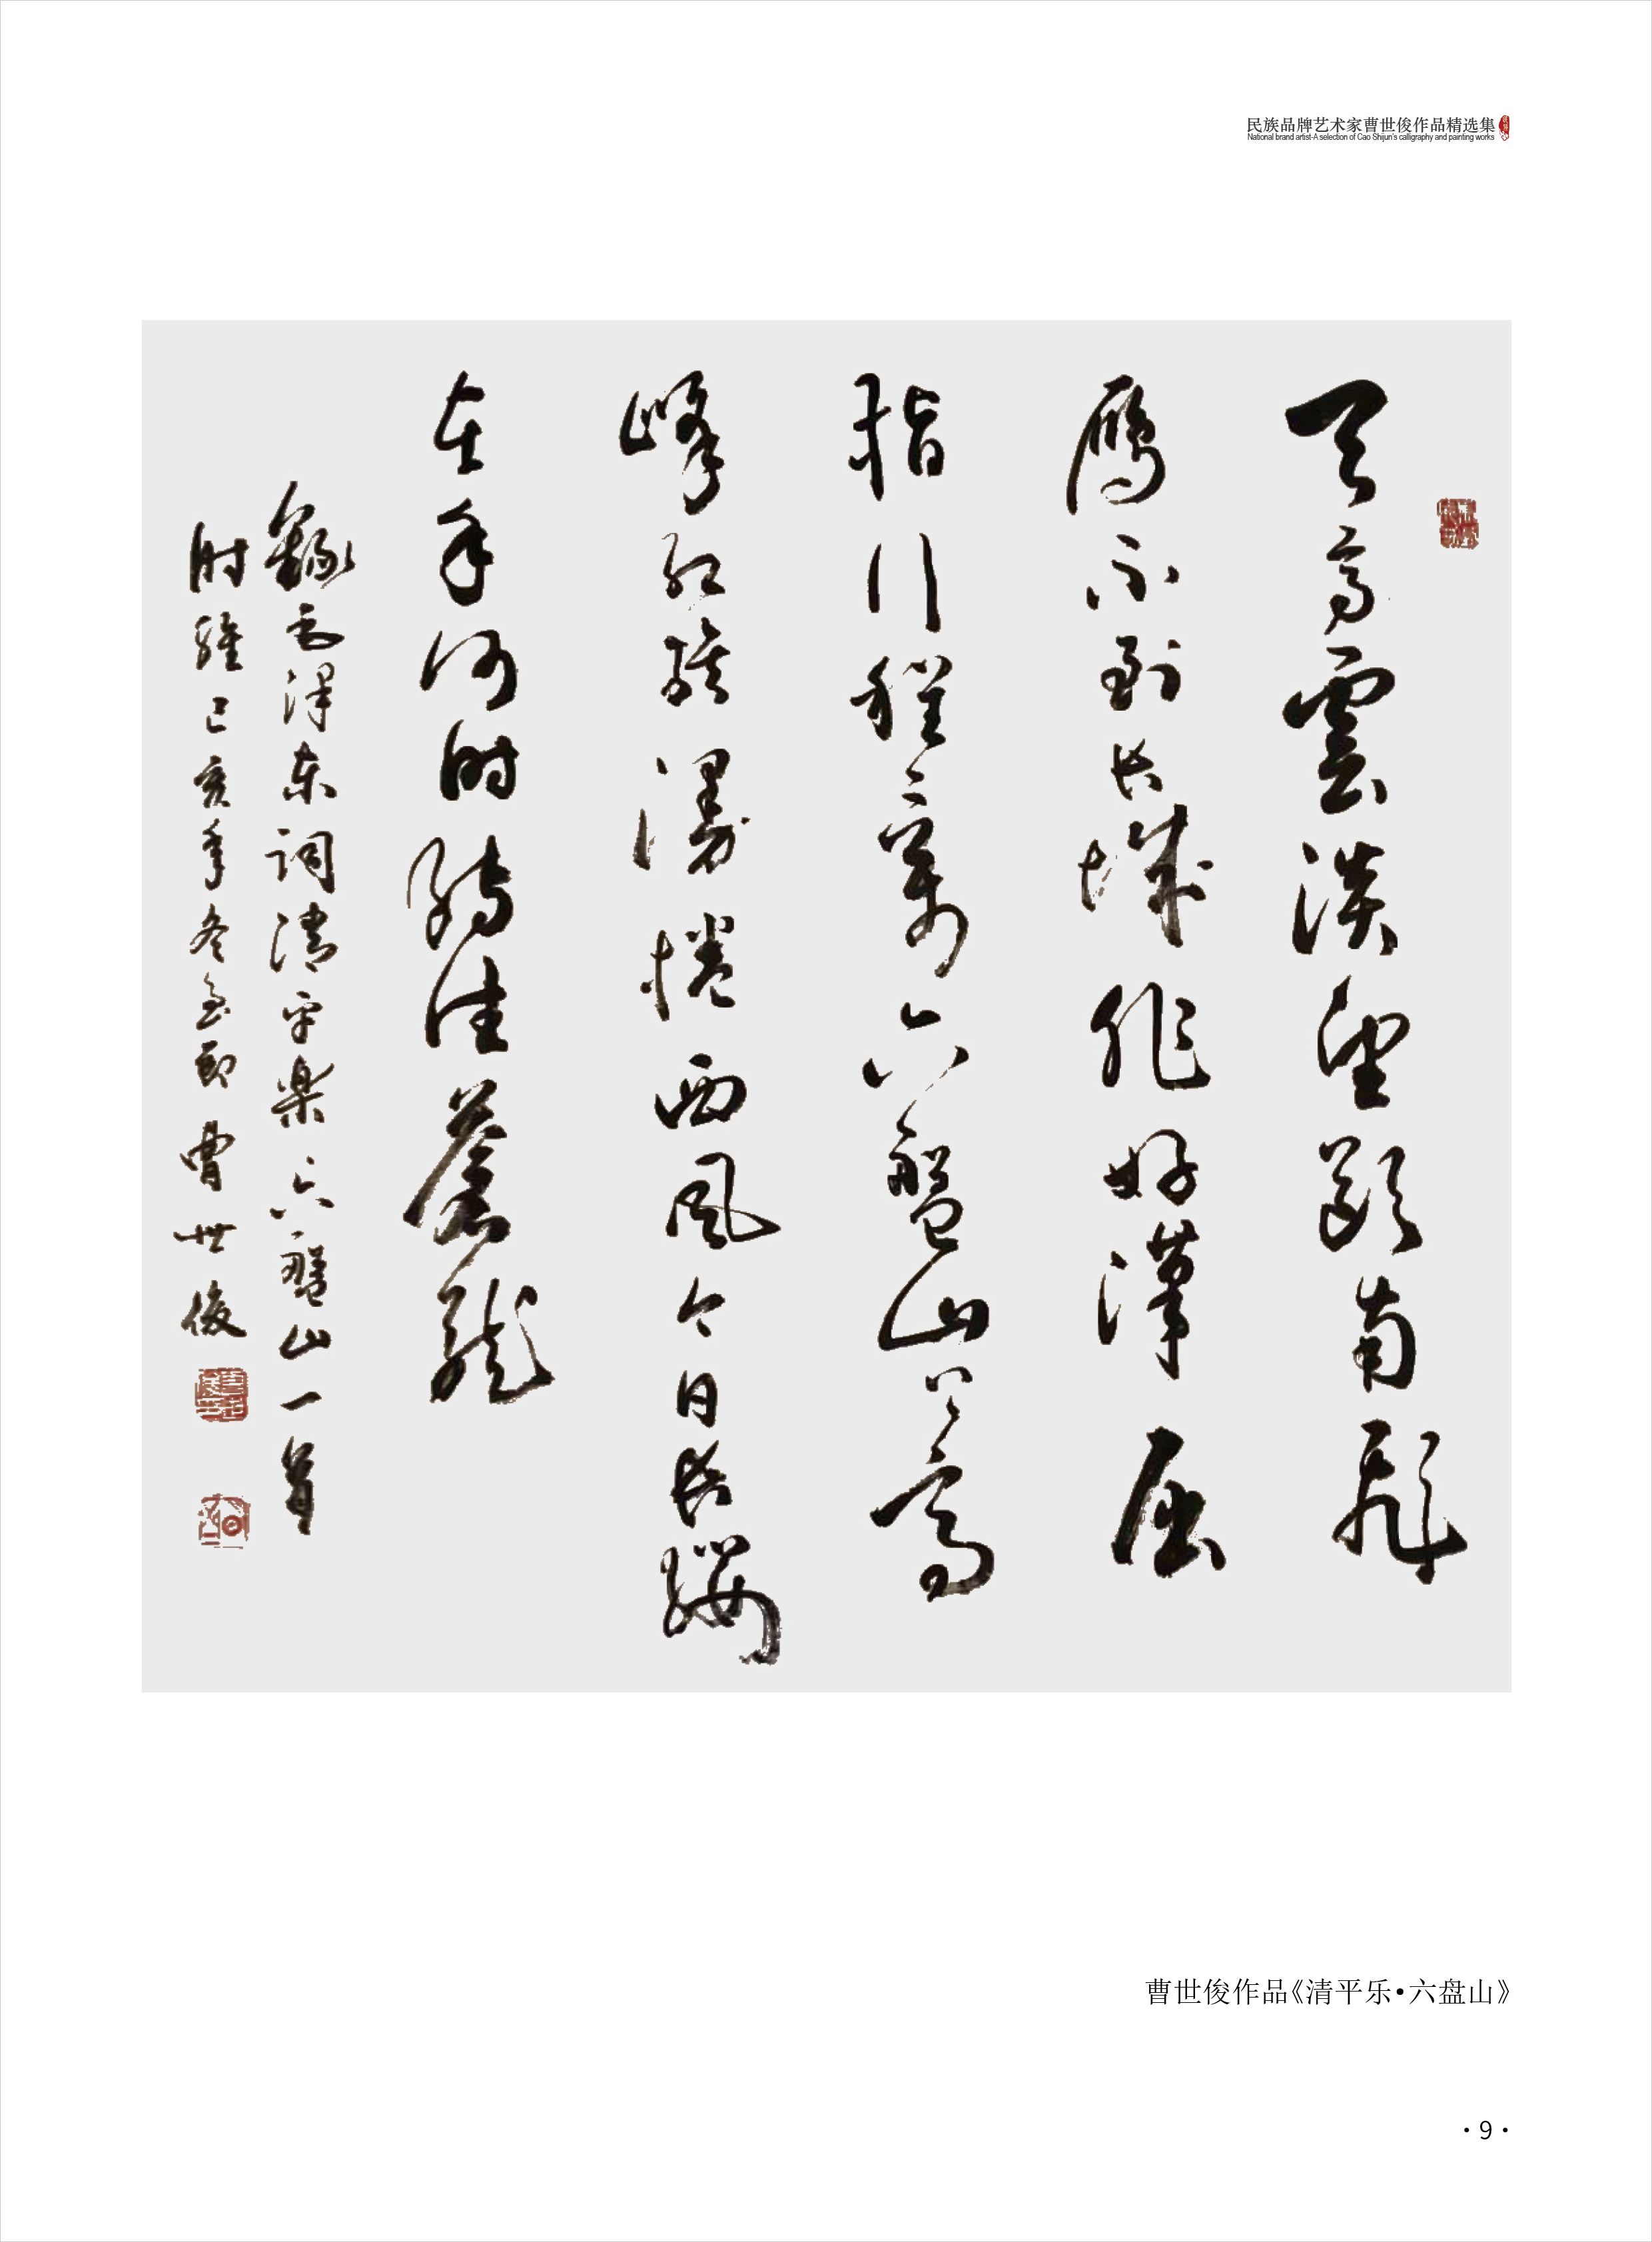 民族品牌艺术家曹世俊作品精选集
National brand artist-A selection of Cao Shijun's calligraphy and painting works
天高雲淡望斷南飛
雁不到长城非好漢屈
指行程二萬六盤山上高
峰红旗漫捲西风今日长纓
在手何时缚住蒼龙
錄毛泽东词清平樂六盤山一首
时维己亥年冬至即曹世俊
曹世俊作品《清平乐•六盘山》
·9·